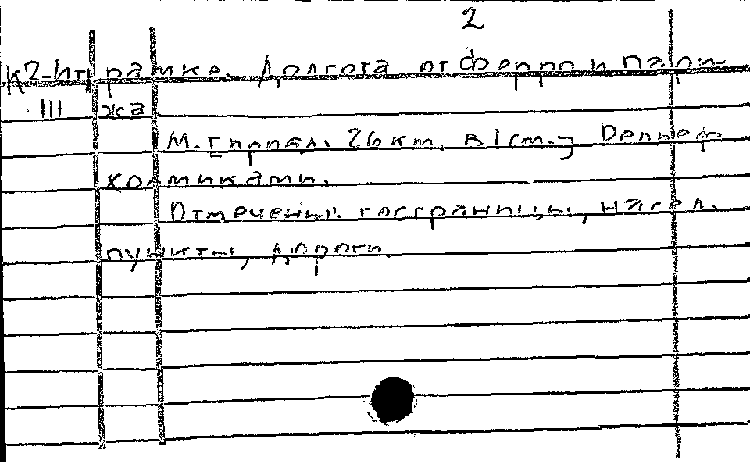 2
К2-Ит рамке. Долгота от Ферро и Пари-
III жа
М. [ 26 км. в 1 см.] Рельеф
холмиками.
Отмечены госграницы, насел.
пункты, дороги.